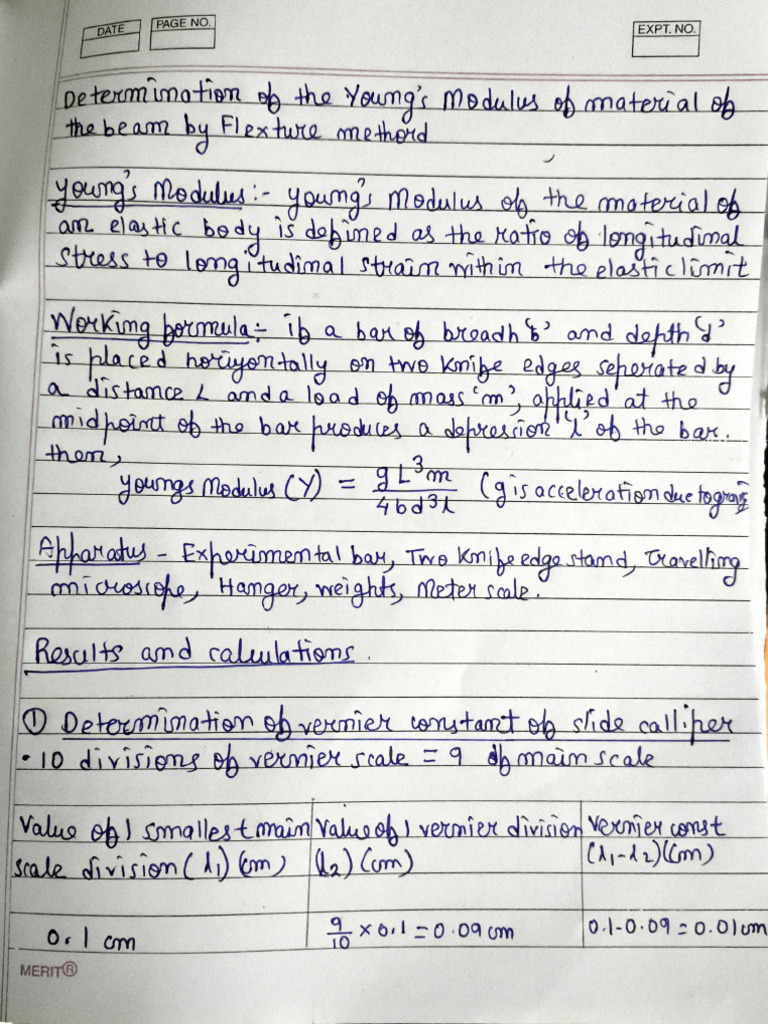 DATE
PAGE NO.
EXPT. NO.
Determination of the Young's Modulus of material of
the beam by Flexture methord
Young's Modulus:- Young's Modulus of the material of
an elastic body is defined as the ratio of longitudinal
stress to longitudinal strain within the elastic limit
Working formula:- if a bar of breadth 'b' and depth 'd'
is placed horizontally on two knife edges seperated by
a distance L and a load of mass 'm', applied at the
midpoint of the bar produces a depression 'l' of the bar.
then,
Youngs Modulus (Y) = gL³m / 4bd³l (g is acceleration due to
Apparatus - Experimental bar, Two knife edge stand, Travelling
microscope, Hanger, weights, Meter scale.
Results and calculations.
① Determination of vernier constant of slide calliper
• 10 divisions of vernier scale = 9 of main scale
Value of 1 smallest main Value of 1 vernier division Vernier const
scale division (l₁) (cm) (l₂) (cm) (l₁-l₂)(cm)
0.1 cm 9/10 × 0.1 = 0.09 cm 0.1-0.09 = 0.01 cm
MERIT®